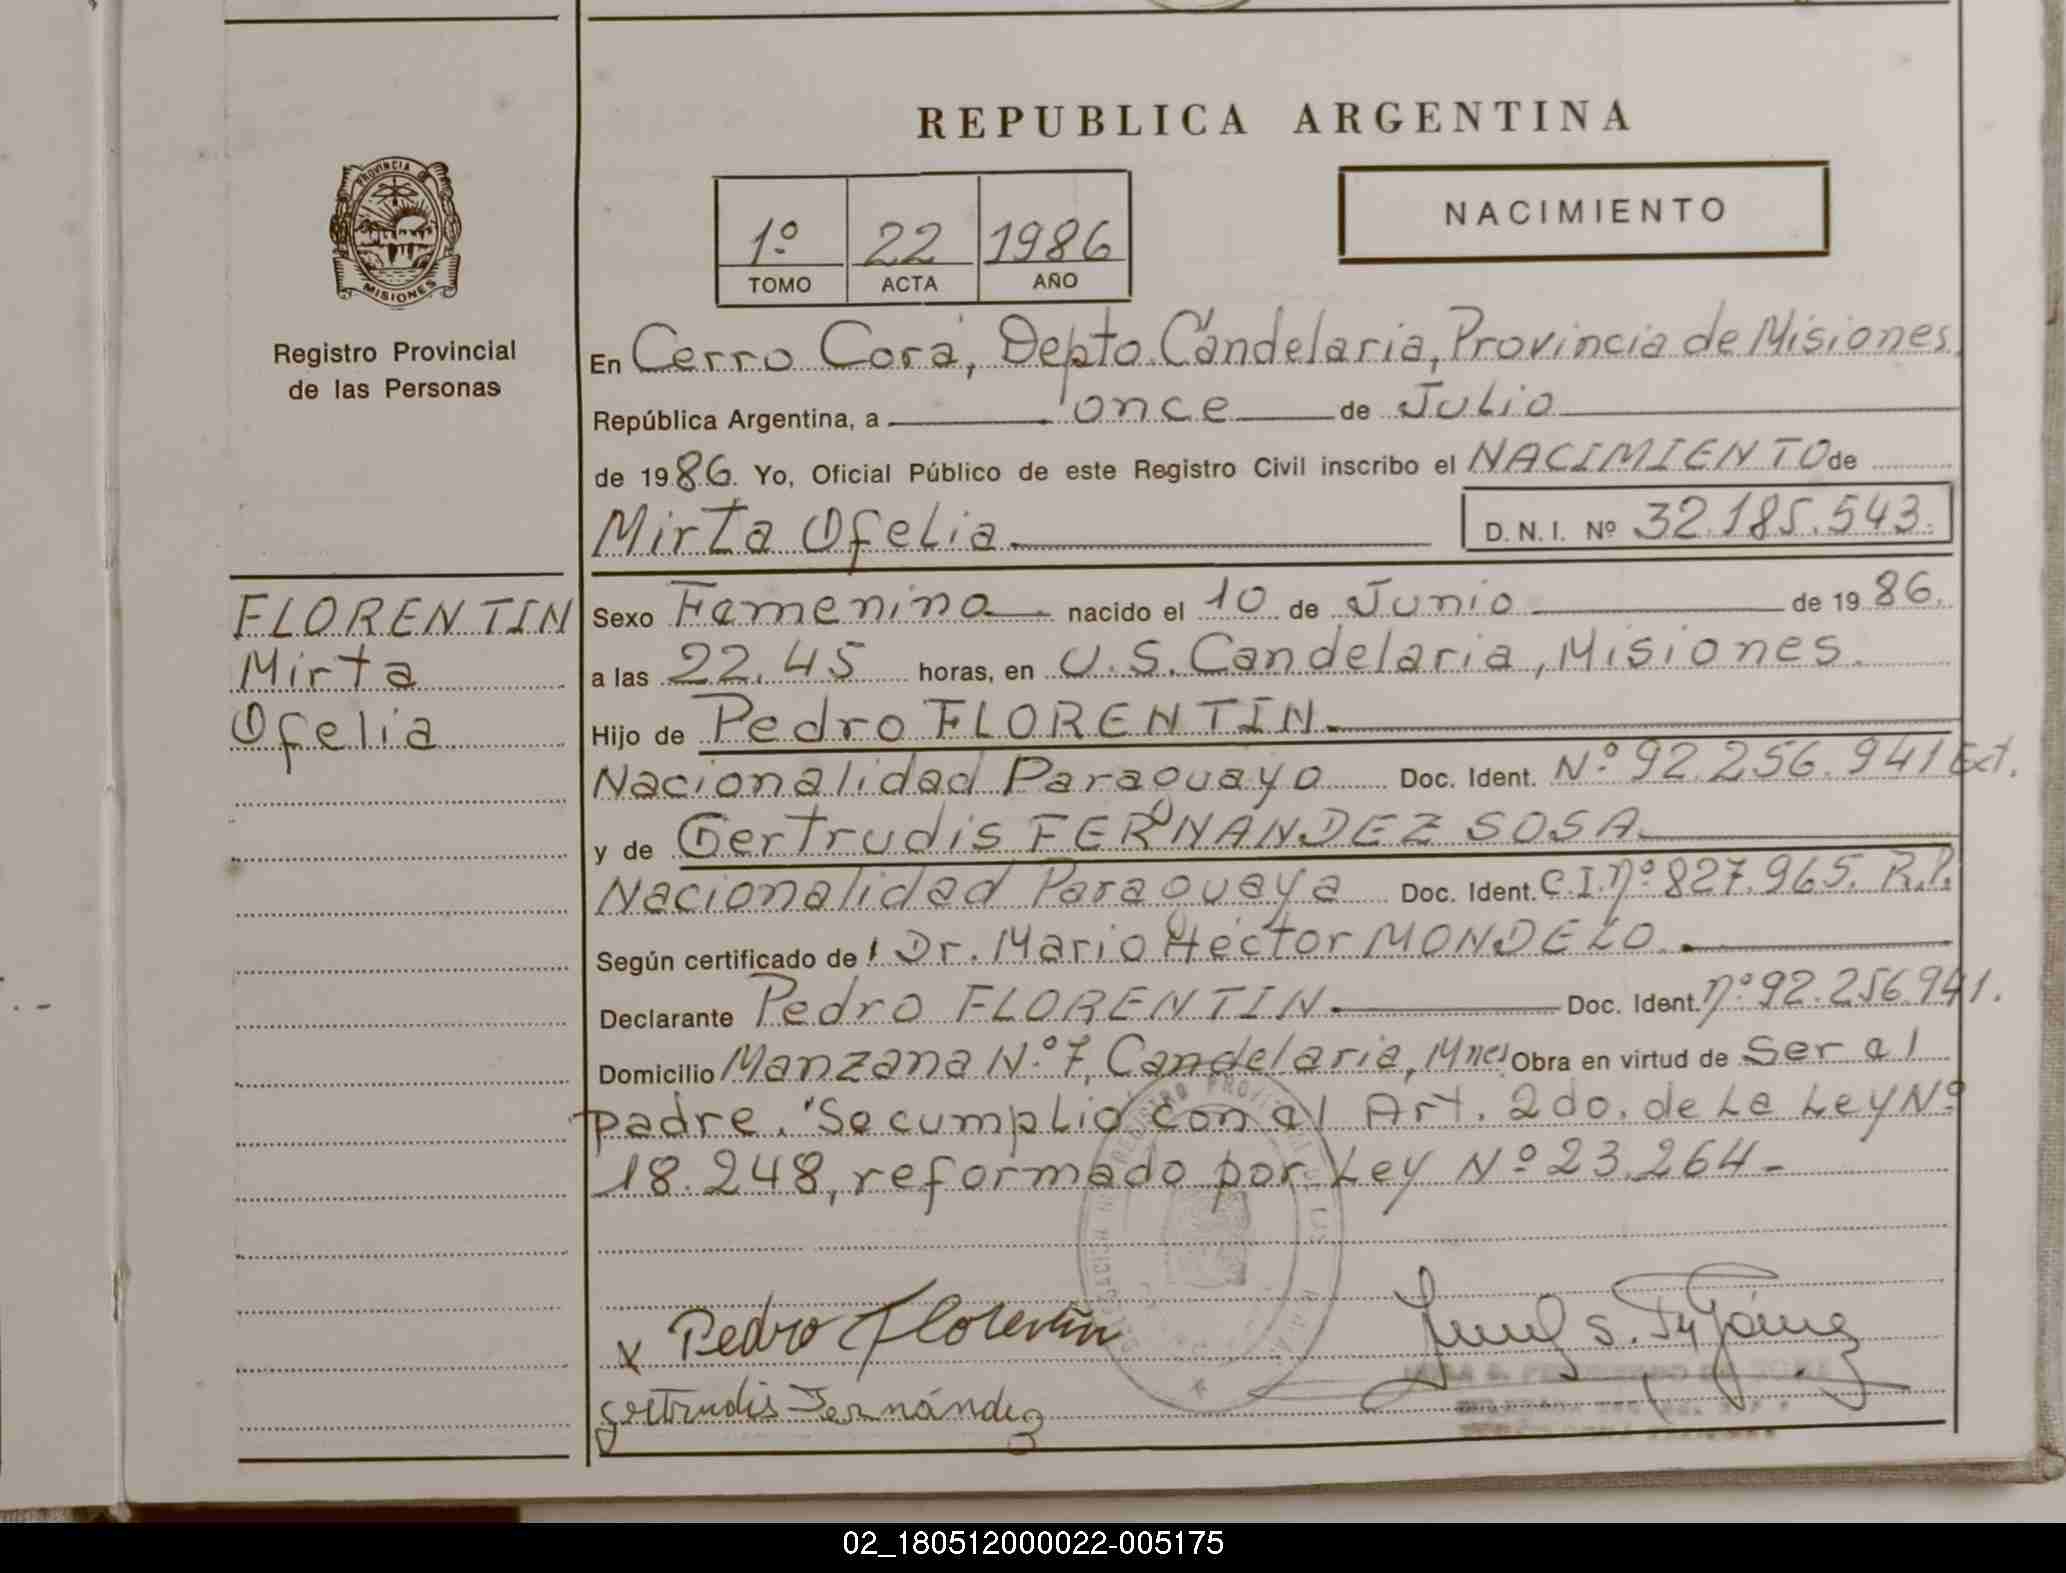 REPUBLICA ARGENTINA
PROVINCIA DE
MISIONES
Registro Provincial
de las Personas
1º 22 1986
TOMO ACTA AÑO
NACIMIENTO
En Cerro Corá, Depto. Candelaria, Provincia de Misiones
República Argentina, a once de Julio
de 1986. Yo, Oficial Público de este Registro Civil inscribo el NACIMIENTO de
Mirta Ofelia D. N. I. Nº 32.185.543.
FLORENTIN
Mirta
Ofelia
Sexo Femenino nacido el 10 de Junio de 1986.
a las 22.45 horas, en U.S. Candelaria, Misiones.
Hijo de Pedro FLORENTIN.
Nacionalidad Paraguayo Doc. Ident. Nº 92.256.941 Ext.
y de Gertrudis FERNANDEZ SOSA.
Nacionalidad Paraguaya Doc. Ident. C.I.nº 827.965. R.P.
Según certificado de: Dr. Mario Héctor MONDELO.
Declarante Pedro FLORENTIN. Doc. Ident. nº 92.256.941.
Domicilio Manzana Nº 7, Candelaria, Mnes Obra en virtud de Ser el
padre. Se cumplió con el Art. 2do. de La Ley Nº
18.248, reformado por Ley Nº 23.264-
x Pedro Florentín
Gertrudis Fernández
02_180512000022-005175